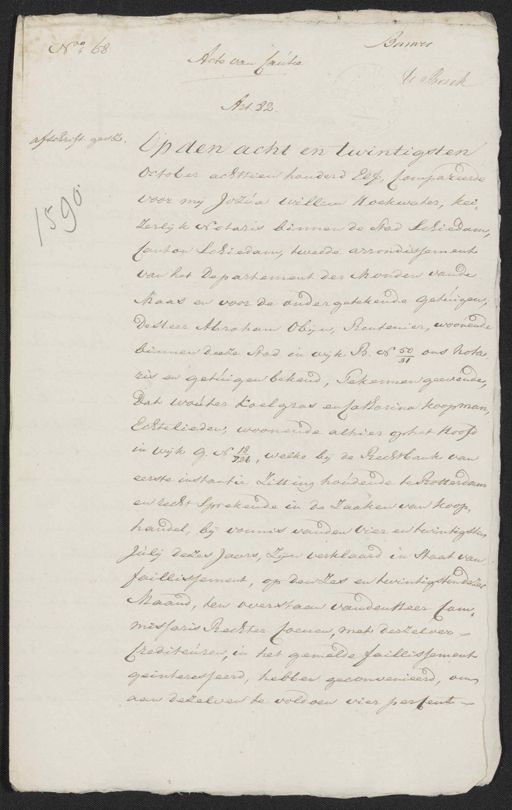 No. 68
Acte van Cautie
Art 22.
afschrift
1590.
Op den acht en twintigsten
October achttien honderd Elf, Compareerde
voor mij Jozúa Willem Hoekwater, Kei-
zerlijk Notaris binnen de Stad Schiedam,
Canton Schiedam, tweede arrondissement
van het Departement der Monden van de
Maas en voor de ondergetekende getúigen,
De Heer Abraham Obijn, Rentenier, woonende
binnen deeze Stad in wijk B. No 50/51 ons Nota-
ris en getúigen bekend, Te kennen geevende,
Dat Woúter Koelgras en Catharina Koopman,
Echtelieden, woonende alhier op het Hoofd
in wijk G. No, welke bij de Rechtbank van
eerste instantie Zitting hoúdende te Rotterdam
en recht Sprekende in de Zaaken van Koop-
handel, bij vonnis van den vier en twintigsten
Júlij dezes Jaars, Zijn verklaard in Staat van
faillissement, op den Zes en twintigsten dezer
Maand, ten overstaan van den Heer Com-
missaris Rechter Coenen, met derzelver
Crediteúren, in het gemelde faillissement
geinteresseerd, hebben geconvenieerd, om
aan dezelven te voldoen vier percent